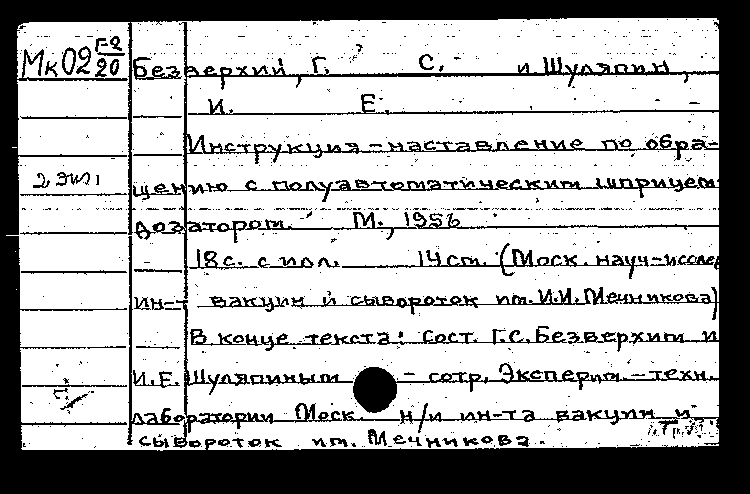 Мк02 Г-2/20 Безверхий, Г. С. и Шуляпин,
И. Е.
Инструкция-наставление по обра-
2 экз. щению с полуавтоматическим шприцем-
дозатором. М., 1956
18с. с илл. 14см. (Моск. науч-исслед
ин-т вакцин и сывороток им. И.И. Мечникова)
В конце текста: Сост. Г.С. Безверхим и
И.Е. Шуляпиным - сотр. Эксперим.-техн.
лаборатории Моск. н/и ин-та вакцин и
сывороток им. Мечникова.